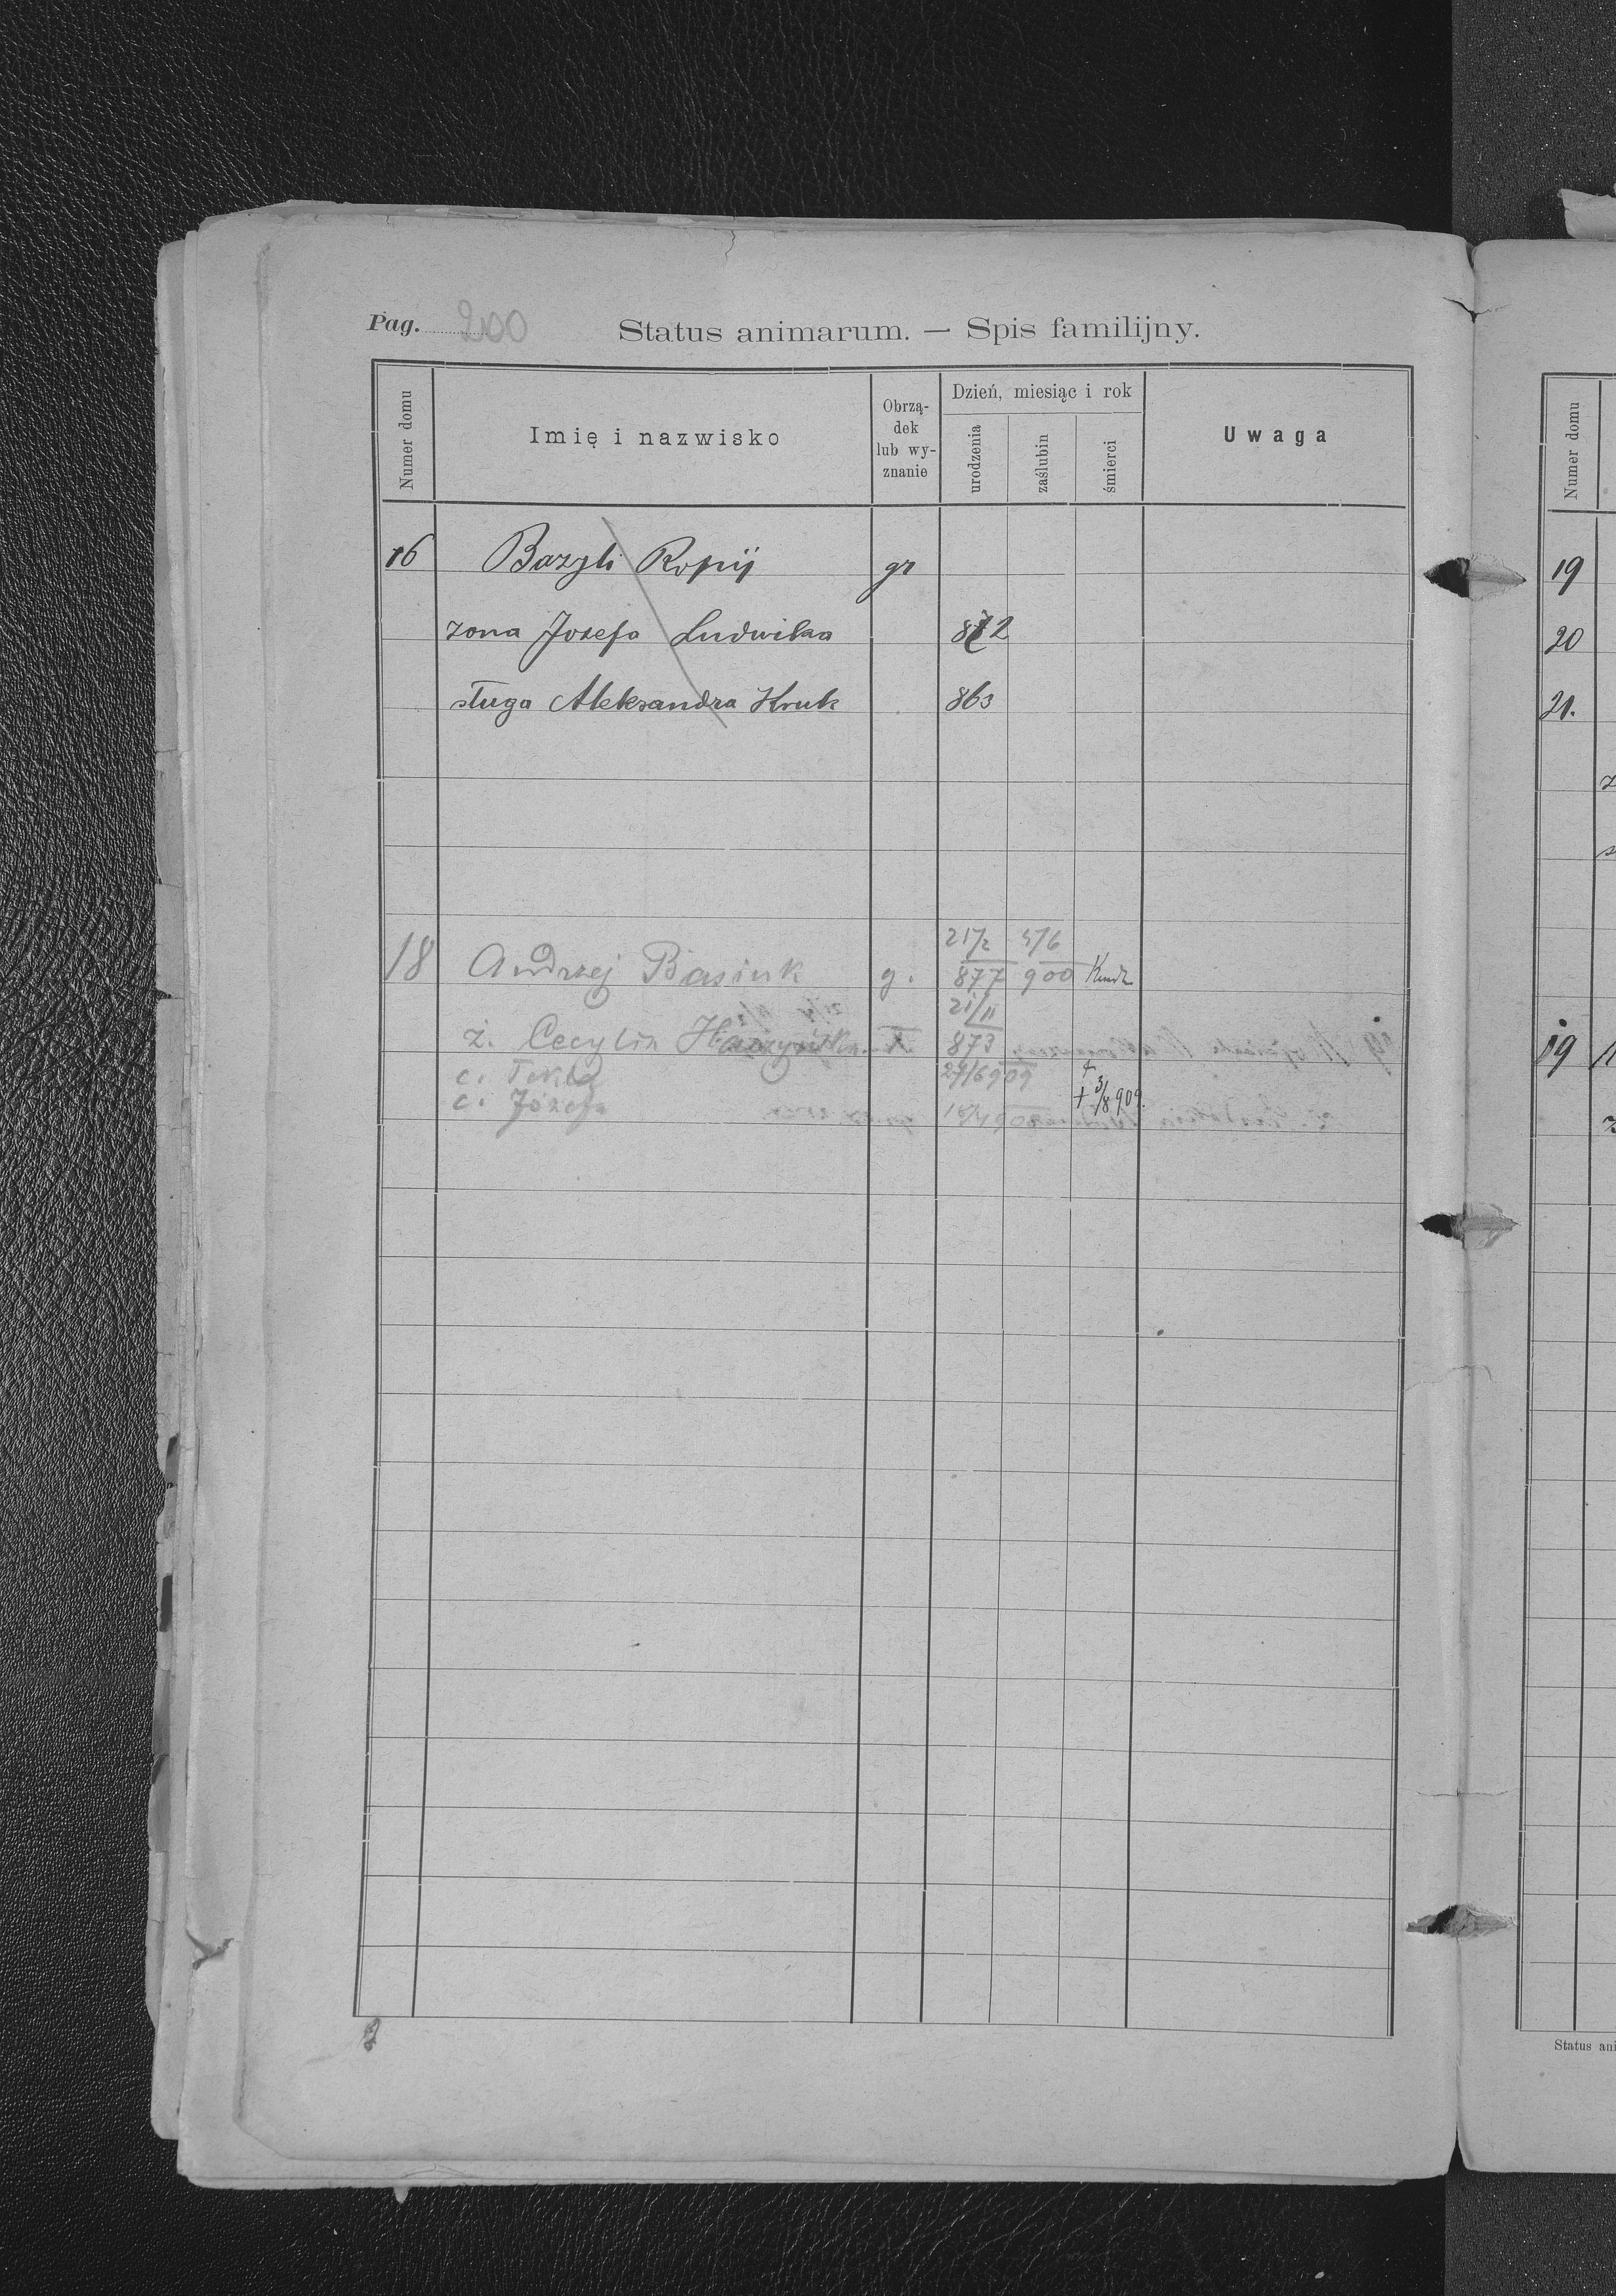 Pag. 200 Status animarum. — Spis familijny.
Numer domu
Imię i nazwisko
Obrzą-
dek
lub wy-
znanie
Dzień, miesiąc i rok
urodzenia
zaślubin
śmierci
Uwaga
16 Bazyli Ropij gr
zona Jozefa Ludwika 872
sługa Aleksandra Kruk 863
21/2 4/6
18 Andrzej Basiuk g. 877 900
21/11
ż. Cecylia 873
c. Tekla 27/6 909 +
c. Józefa + 3/8 909.
Numer domu
19
20
21.
19
Status ani